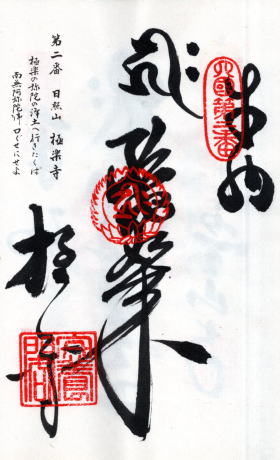 奉納
四國第二番
阿弥陀如来
極楽寺
第二番　日照山　極楽寺
極楽の弥陀の浄土へ行きたくば
南無阿弥陀佛口ぐせにせよ